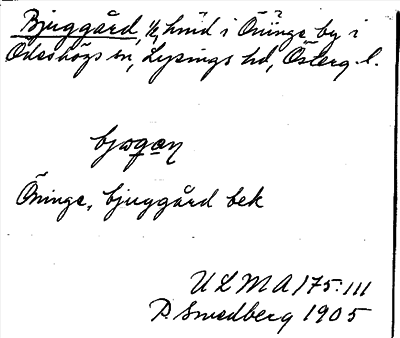 Bjuggård, 1/2 hmd i Öninge by i
Ödeshögs sn, Lysings hd, Österg. l.
Öninge, bjuggård bek
ULMA 175:111
P. Smedberg 1905